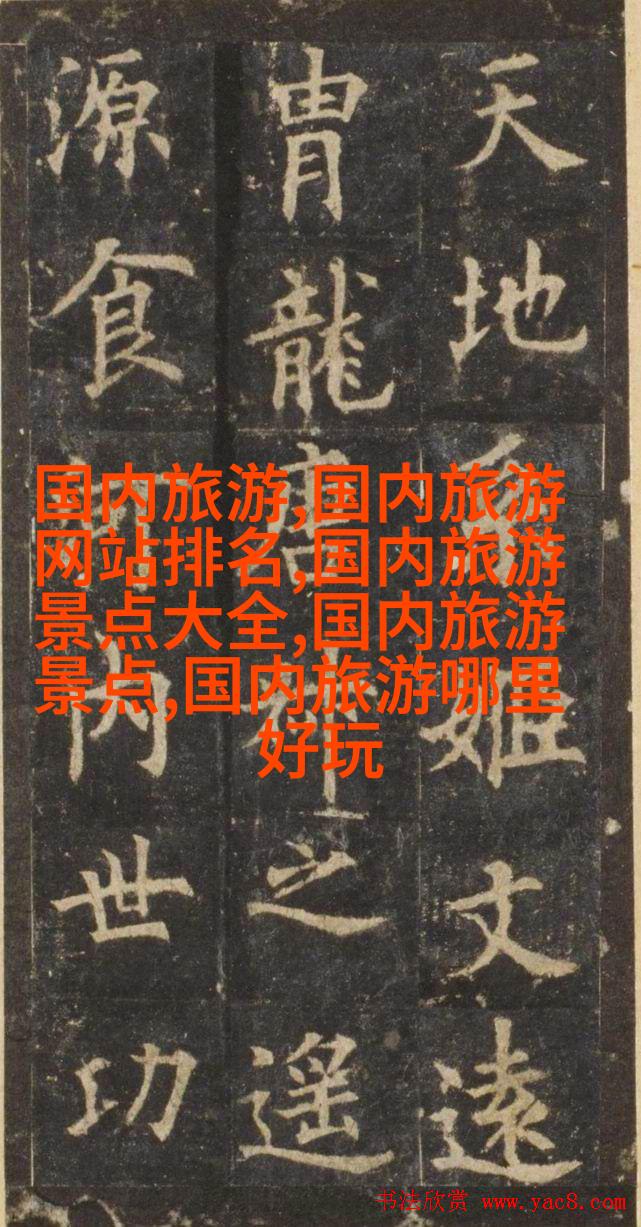 天地姬文遠
胄龍書之遥
源食内世功
国内旅游,国内旅游
网站排名,国内旅游
景点大全,国内旅游
景点,国内旅游哪里
好玩
书法欣赏 www.yac8.com